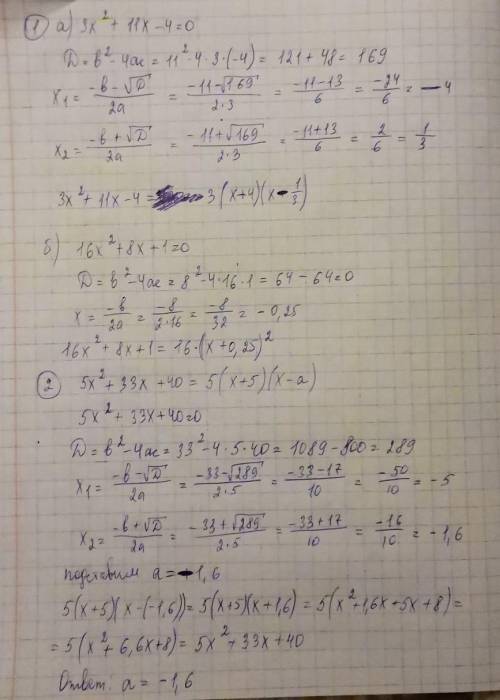 ① а) 3x² + 11x - 4 = 0
D = b² - 4ac = 11² - 4 · 3 · (-4) = 121 + 48 = 169
x₁ = (-b - √D)/2a = (-11 - √169)/(2·3) = (-11 - 13)/6 = -24/6 = -4
x₂ = (-b + √D)/2a = (-11 + √169)/(2·3) = (-11 + 13)/6 = 2/6 = 1/3
3x² + 11x - 4 = 3(x + 4)(x - 1/3)
б) 16x² + 8x + 1 = 0
D = b² - 4ac = 8² - 4 · 16 · 1 = 64 - 64 = 0
x = -b/2a = -8/(2·16) = -8/32 = -0,25
16x² + 8x + 1 = 16 · (x + 0,25)²
② 5x² + 33x + 40 = 5(x + 5)(x - a)
5x² + 33x + 40 = 0
D = b² - 4ac = 33² - 4 · 5 · 40 = 1089 - 800 = 289
x₁ = (-b - √D)/2a = (-33 - √289)/(2·5) = (-33 - 17)/10 = -50/10 = -5
x₂ = (-b + √D)/2a = (-33 + √289)/(2·5) = (-33 + 17)/10 = -16/10 = -1,6
подставим a = -1,6
5(x + 5)(x - (-1,6)) = 5(x + 5)(x + 1,6) = 5(x² + 1,6x + 5x + 8) =
= 5(x² + 6,6x + 8) = 5x² + 33x + 40
Ответ. a = -1,6